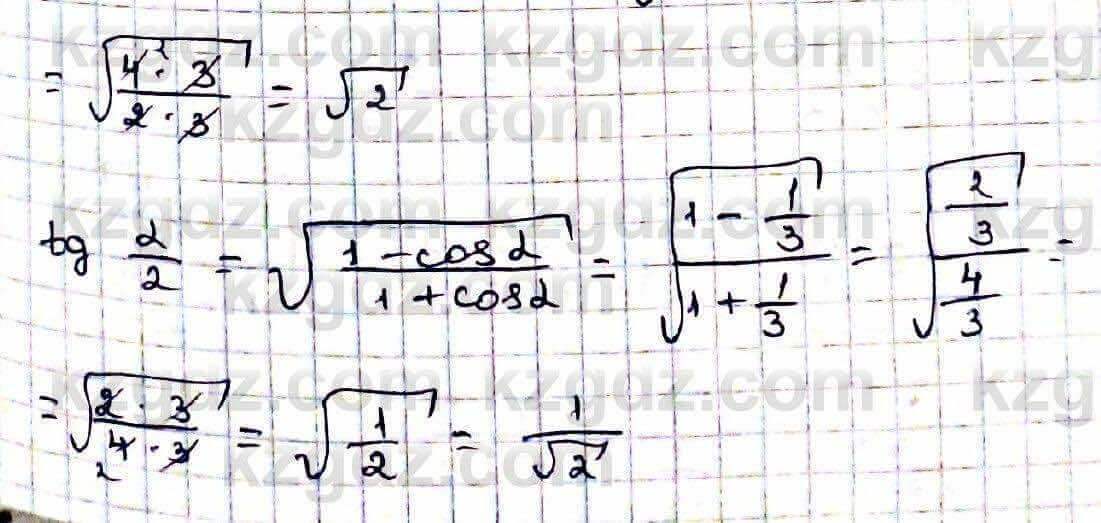 = √(4² · 3 / 2 · 3) = √2
tg α/2 = √(1 - cos α / 1 + cos α) = √(1 - 1/3 / 1 + 1/3) = √(2/3 / 4/3) =
= √(2 · 3 / 4 · 3) 2 = √(1/2) = 1/√2
kzgdz.com kzgdz.com kzg
kzgdz.com
kzgdz.com kzgdz.com kzg
kzgdz.com
kzgdz.com kzgdz.com kzg
kzgdz.com